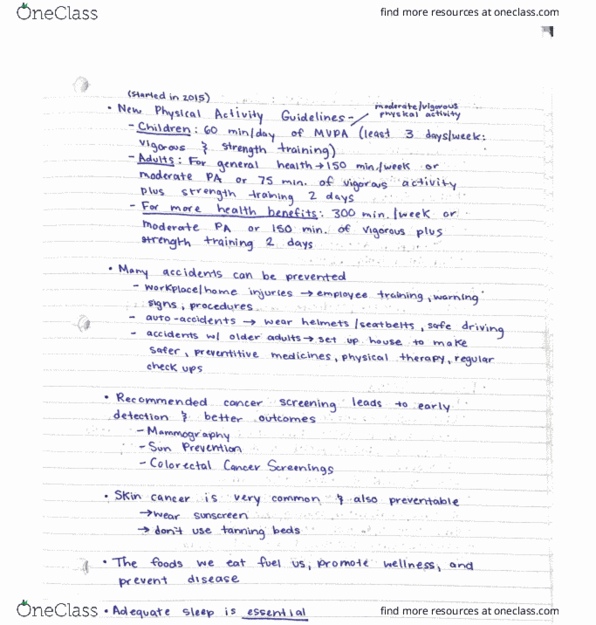 OneClass
find more resources at oneclass.com
(started in 2015)
• New Physical Activity Guidelines - moderate/vigorous physical activity
- Children: 60 min/day of MVPA (least 3 days/week:
vigorous & strength training)
- Adults: For general health → 150 min./week or
moderate PA or 75 min. of vigorous activity
plus strength training 2 days
- For more health benefits: 300 min./week or
moderate PA or 150 min. of vigorous plus
strength training 2 days
• Many accidents can be prevented
- workplace/home injuries → employee training, warning
signs, procedures
- auto-accidents → wear helmets/seatbelts, safe driving
- accidents w/ older adults → set up house to make
safer, preventitive medicines, physical therapy, regular
check ups
• Recommended cancer screening leads to early
detection & better outcomes
- Mammography
- Sun Prevention
- Colorectal Cancer Screenings
• Skin cancer is very common & also preventable
→ wear sunscreen
→ don't use tanning beds
• The foods we eat fuel us, promote wellness, and
prevent disease
• Adequate sleep is essential
OneClass
find more resources at oneclass.com